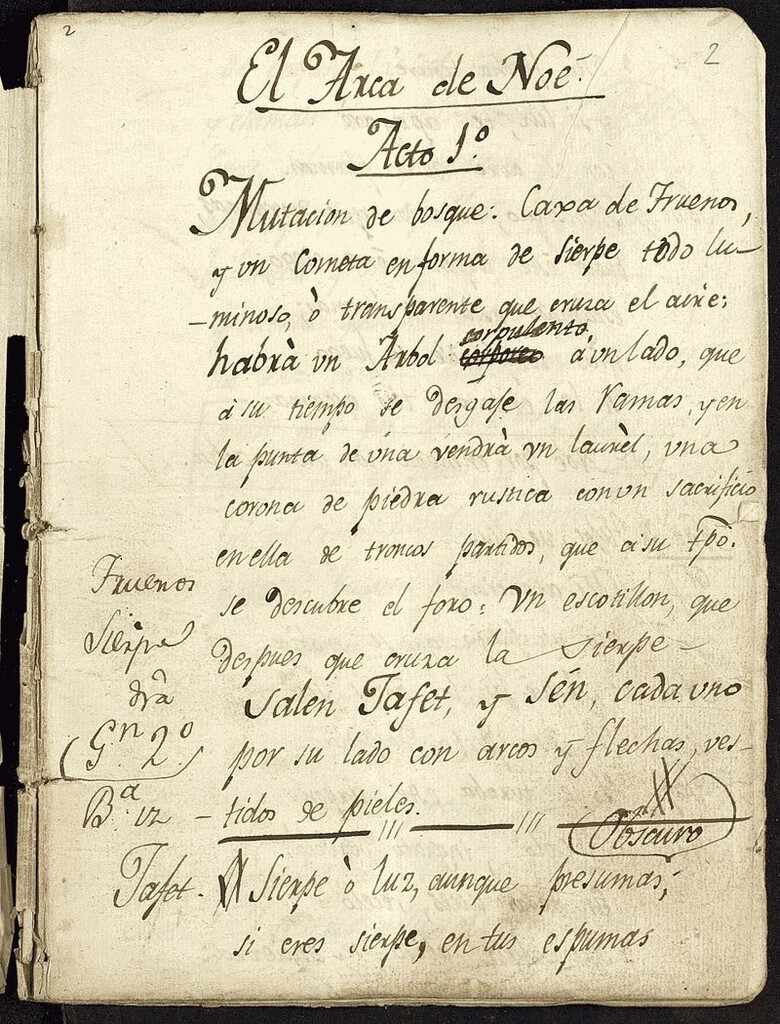 2
2
El Arca de Noé.
Acto 1º
Mutacion de bosque: Caxa de Truenos,
y vn Cometa en forma de Sierpe todo lu-
-minoso, ò transparente que cruza el aire:
corpulento
habrà vn Arbol corporeo à vn lado, que
à su tiempo se desgaje las Ramas, y en
la punta de vna vendrà vn laurèl, vna
corona de piedra rustica con vn sacrificio
en ella de troncos partidos, que a su tpô.
se descubre el foro: Vn escotillon, que
despues que cruza la Sierpe-
Salen Jafet, y Sén, cada vno
por su lado con arcos y flechas, ves-
-tidos de pieles.
Truenos
Sierpe
drâ
Gn. 2º
Bª iz
Obscuro
Jafet. Sierpe ò luz, aunque presumas,
si eres sierpe, en tus espumas